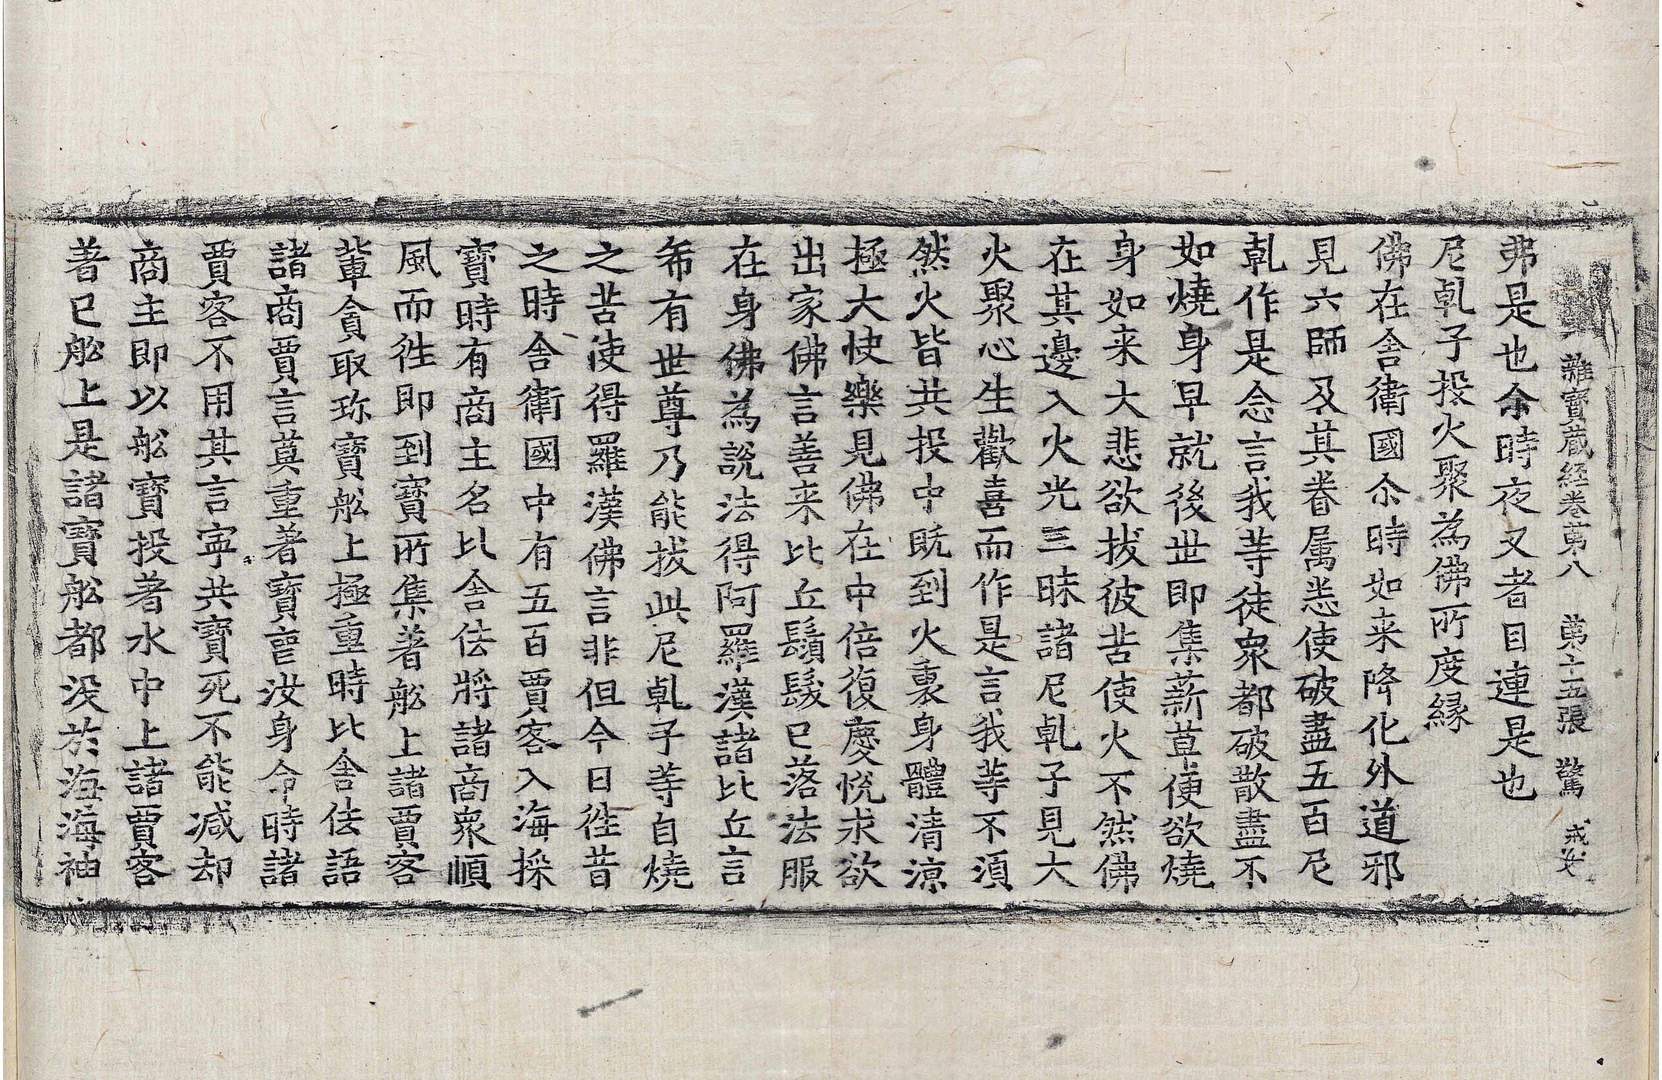 雜寶蔵経卷苐八 苐十五張 驚 戒安
弗是也尒時夜叉者目連是也
尼乹子投火聚為佛所度縁
佛在舎衛國尒時如来降化外道邪
見六師及其眷属悉使破盡五百尼
乹作是念言我等徒衆都破散盡不
如燒身早就後世即集薪草便欲燒
身如来大悲欲拔彼苦使火不然佛
在其邊入火光三昧諸尼乹子見大
火聚心生歡喜而作是言我等不湏
然火皆共投中旣到火裏身體清涼
極大快樂見佛在中倍復慶悅求欲
出家佛言善来比丘鬚髮已落法服
在身佛為說法得阿羅漢諸比丘言
希有世尊乃能拔此尼乹子等自燒
之苦使得羅漢佛言非但今日徃昔
之時舎衛國中有五百賈客入海採
寳時有商主名比舎佉將諸商衆順
風而徃即到寳所集著舩上諸賈客
輩貪取珎寳舩上極重時比舎佉語
諸商賈言莫重著寳喪汝身命時諸
賈客不用其言寧共寳死不能減却
商主即以舩寳投著水中上諸賈客
著已舩上是諸寳舩都没於海海神